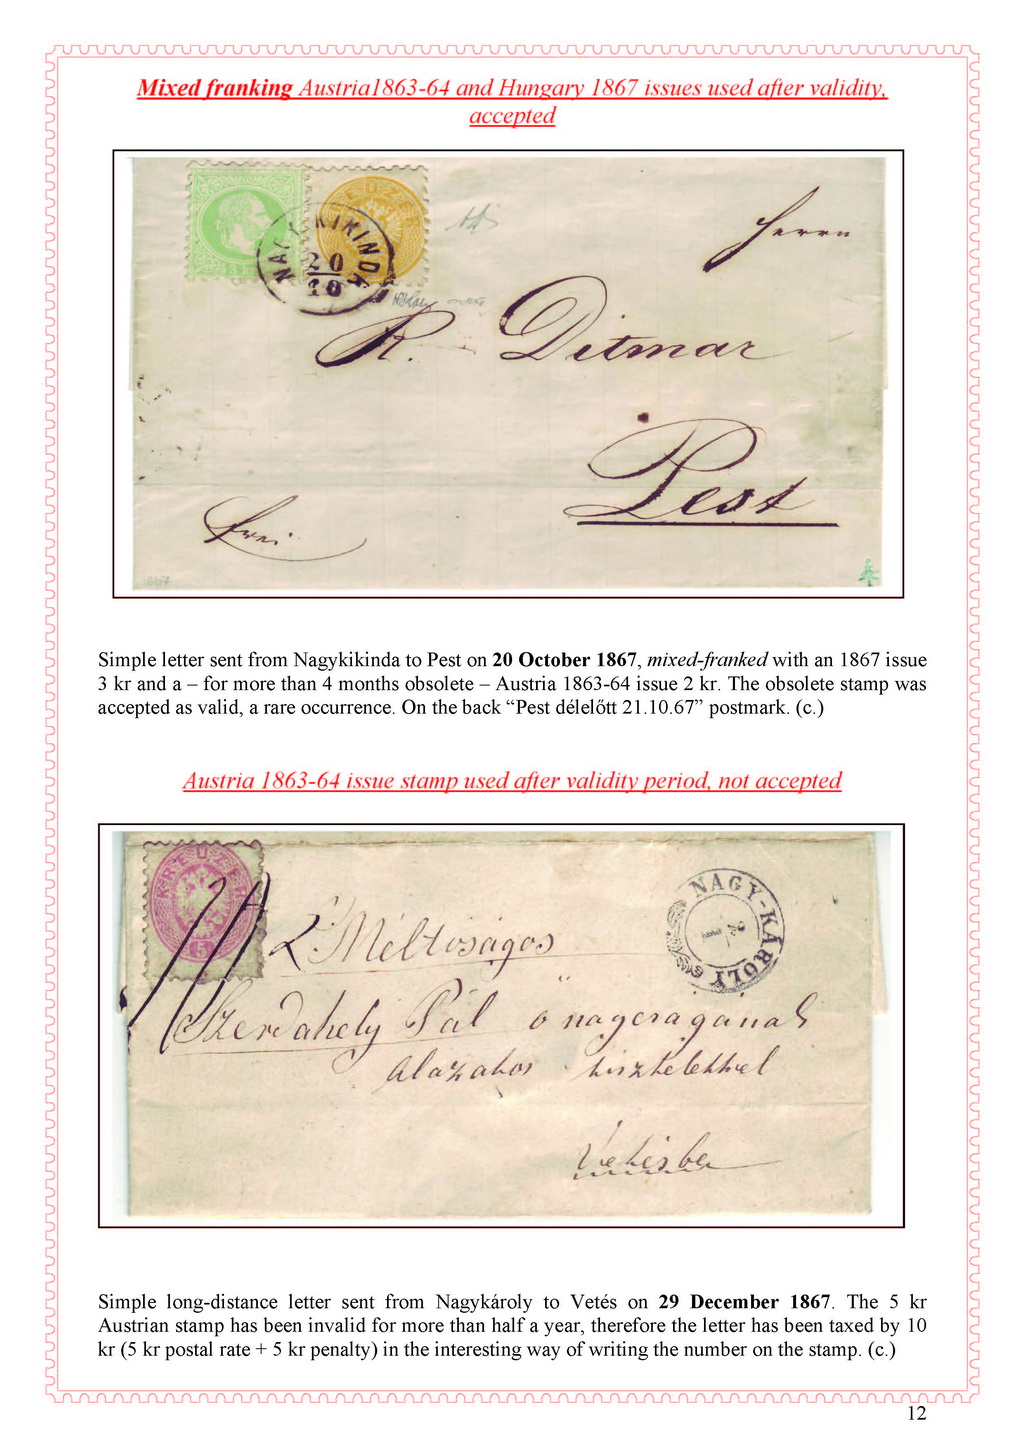 Mixed franking Austria1863-64 and Hungary 1867 issues used after validity,
accepted
KREUZER
NAGY KIKINDA
20
10
Herrn
R. Ditmar
Pest
frei
1867
Simple letter sent from Nagykikinda to Pest on 20 October 1867, mixed-franked with an 1867 issue
3 kr and a – for more than 4 months obsolete – Austria 1863-64 issue 2 kr. The obsolete stamp was
accepted as valid, a rare occurrence. On the back “Pest délelőtt 21.10.67” postmark. (c.)
Austria 1863-64 issue stamp used after validity period, not accepted
KREUZER
5
10
NAGY-KÁROLY
Méltóságos
Szerdahely Pál ő nagyságának
alázatos tisztelettel
Vetésbe
Simple long-distance letter sent from Nagykároly to Vetés on 29 December 1867. The 5 kr
Austrian stamp has been invalid for more than half a year, therefore the letter has been taxed by 10
kr (5 kr postal rate + 5 kr penalty) in the interesting way of writing the number on the stamp. (c.)
12